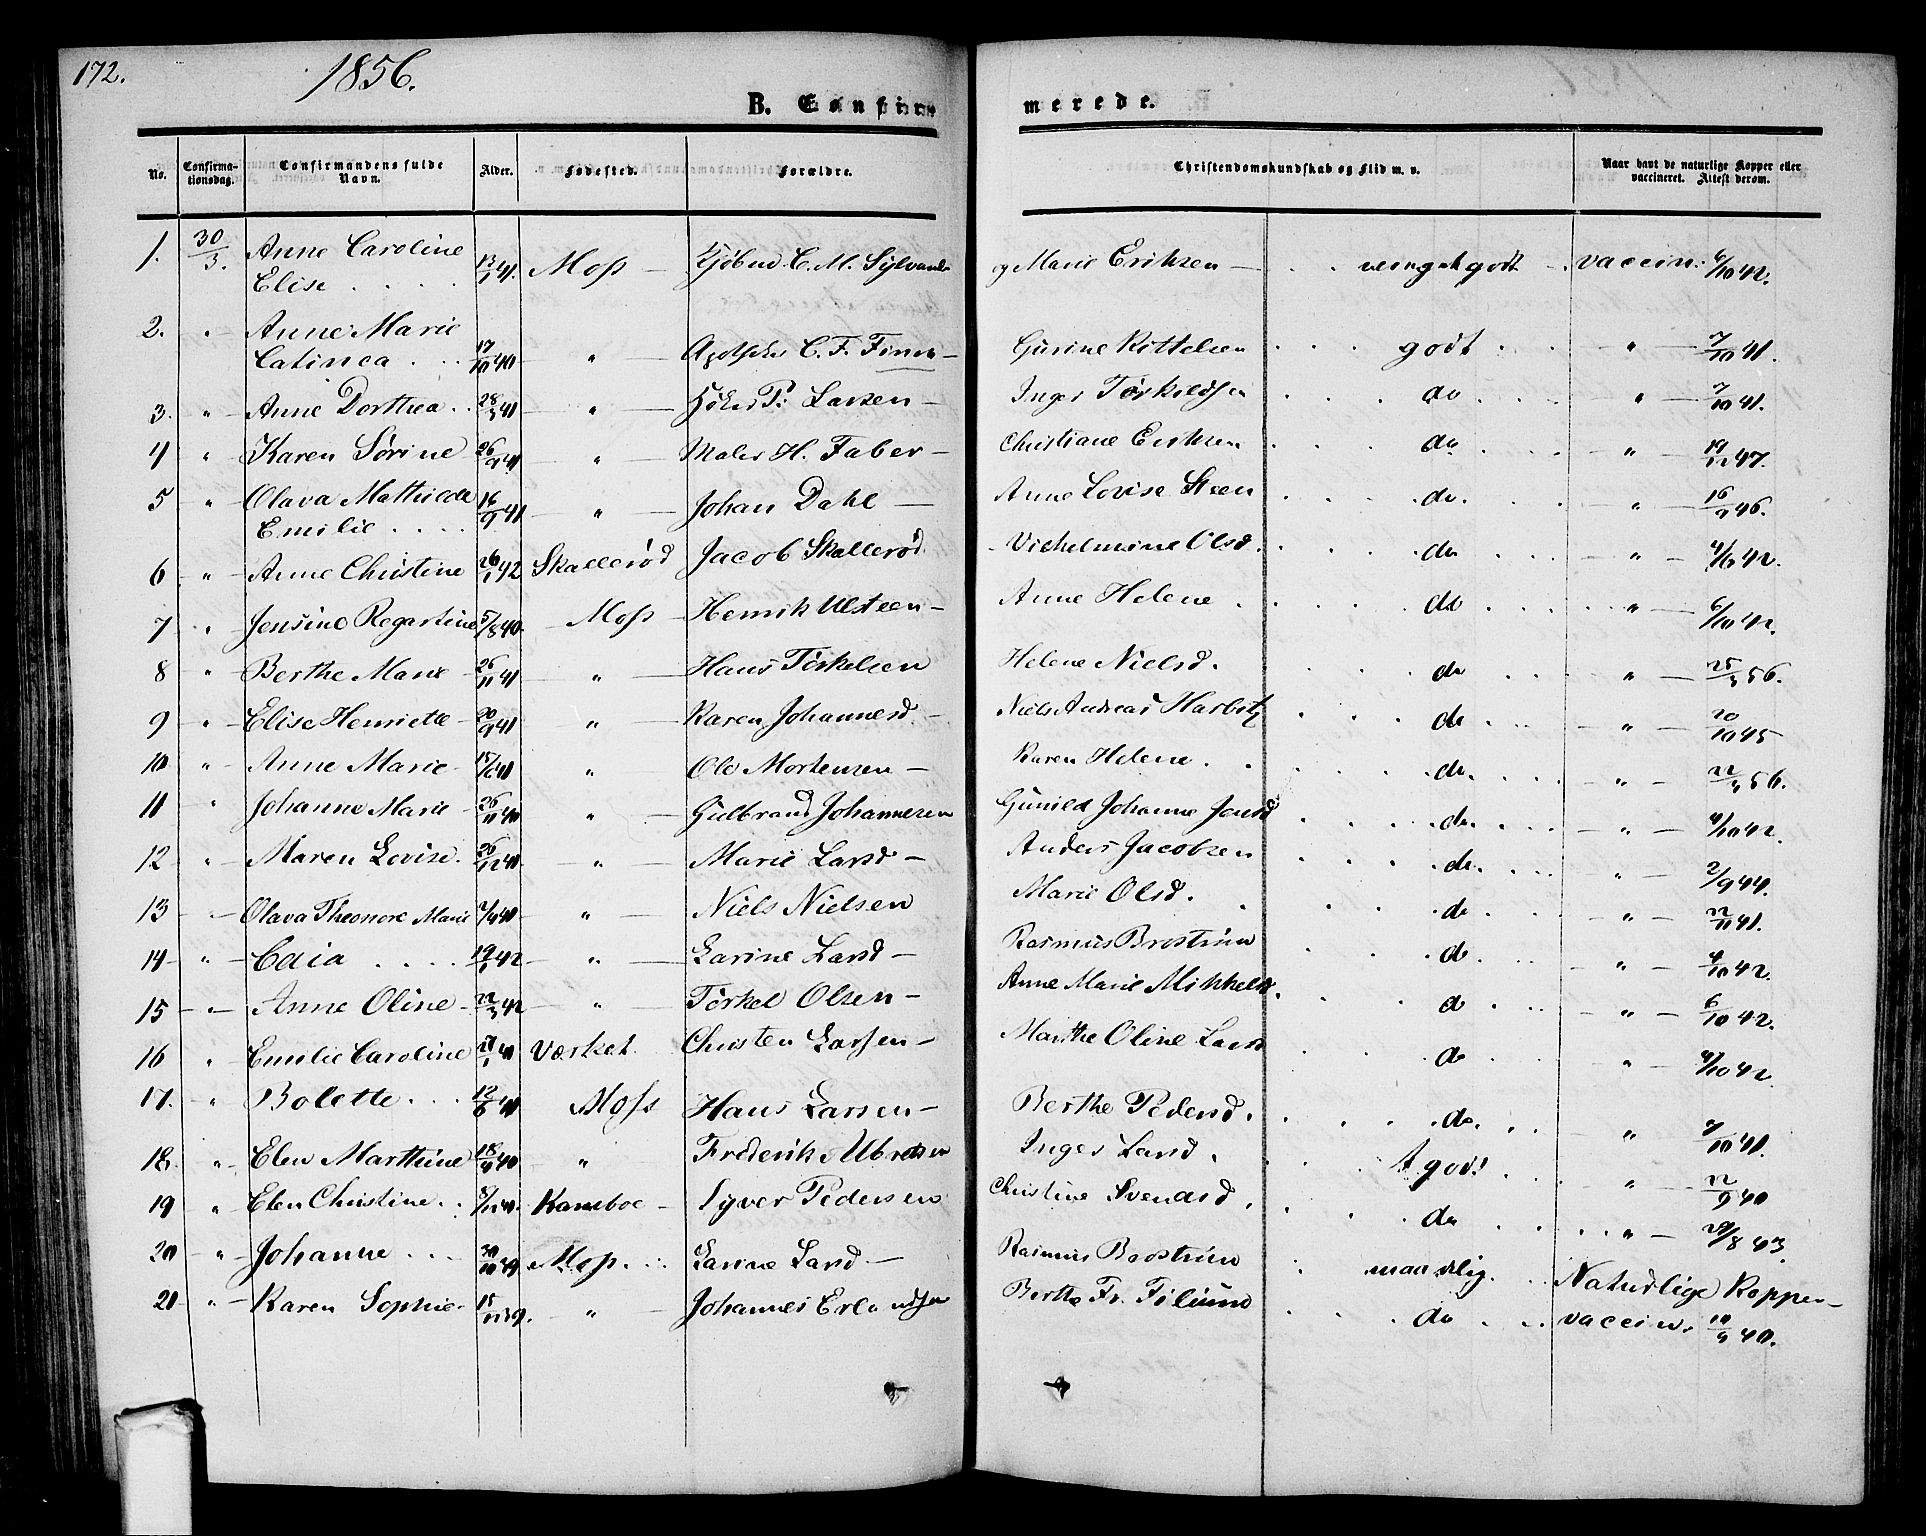 172.
1856.
B. Confirmerede.
No. Confirmationsdag. Confirmandens fulde Navn. Alder. Fødested. Forældre. Christendomskundskab og Flid m. v. Naar havt de naturlige Kopper eller vaccineret. Attest derom.
1. 30/3. Anne Caroline Elise . . . . 13/9 41. Moss — Kjøbmd. C. M. Sylvand og Marie Eriksen — . . meget godt . vaccin: 6/10 42.
2. " Anne Marie Catinca . . . 17/10 40 — " — C. F. — Gurine Kittelsen . . . godt . . . — " — 7/10 41.
3. " Anne Dorthea . . 28/3 41 — " — Høker P. Larsen — Inger . . . do . . . . " — 7/10 41.
4 " Karen Sørine 26/9 41 — " — Maler H. Faber — Christiane Eriksen . . . do . . . — " — 47.
5 " Olava Mathilde Emilie . . . . 16/9 41 — " — Johan Dahl — Anne Lovise Steen . . . do. . . . — " — 16/9 46.
6 " Anne Christine 26/1 42 Skallerød Jacob Skallerød. Vilhelmine Olsd. . . . do . . . — " — 42.
7 " Jensine Regartine 5/8 40. — Moss — Henrik Ulsteen — Anne Helene . . . . do . . . . " — 6/10 42.
8 " Berthe Marie — 26/11 41 — " — Hans Torkelsen Helene Nielsd. . . . do . . . — " — 25/3 56.
9 " Elise Henriette — 20/9 41 " — Karen Johannesd. — Niels Andreas Harbitz . . . do . . . — " — 20/10 45
10 " Anne Marie — 41 — " — Ole Mortensen — Karen Helene . . . . do. . . . — " — 22/3 56.
11 " Johanne Marie — 26/11 40 — " — Gulbrand Johannesen Gunild Johanne Jensd . . . do. . . . — " — 4/10 42.
12 " Maren Lovise. 26/12 40 — " — Marie Larsd — Anders Jacobsen . . . do. . . . — " — 2/9 44.
13 " Olava Theonore Marie — " — Niels Nielsen Marie Olsd. . . . do . . . — " — 22/11 41.
14 — " — Caia . . . . 19/1 42 — " — Larine Larsd — Rasmus Brostrøm . . . do . . . — " — 4/10 42.
15 — " — Anne Oline — 22/3 42 — " — Torkel Olsen — Anne Marie Mikkelsd. . . . do . . . — " — 6/10 42.
16 " Emilie Caroline Værket. Christen Larsen — Marthe Oline Larsd . . . do . . . " 4/10 42
17. " Bolette . . . 12/6 41 Moss Hans Larsen — Berthe Pedersd. . . . do. . . . — " 7/10 41.
18. " Elen Marthine 18/9 40 — " Frederik Albretsen Inger Larsd. . . . t. godt . . . — " — 22/9 40
19 " Elen Christine. . 40. Kamboe — Syver Pedersen Christine Svendsd. . . . do . . . " — 43.
20 — " — Johanne . . . 30/10 39 — Moss. . . Larine Larsd — Rasmus Brostrøm . . maadelig. . . Naturlige Kopper —
21 — " — Karen Sophie — 15/11 39. — " — Johannes Erlandsen Berthe Fr. . . . do . . . vaccin. 40.